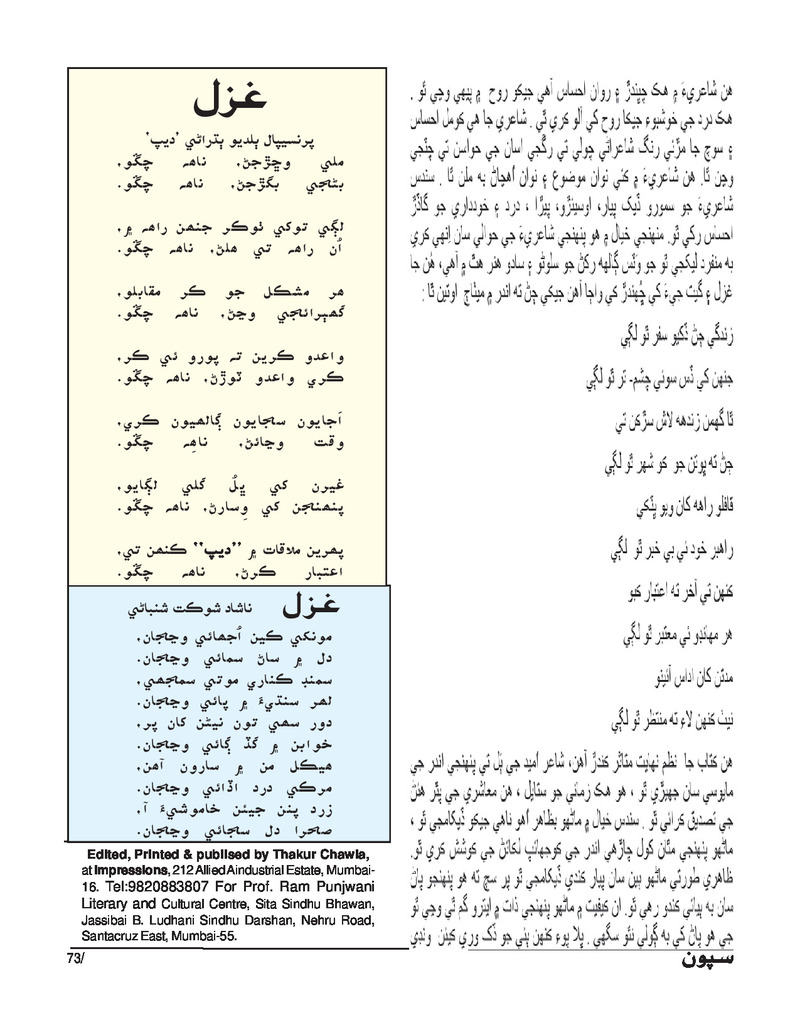 هن شاعريءَ ۾ هڪ چيندڙ ۽ روان احساس آهي جيڪو روح ۾ پيهي وڃي ٿو .
هڪ درد جي خوشبوءِ جيڪا روح کي آلو ڪري ٿي . شاعري جا هي ڪومل احساس
۽ سوچ جا مڙئي رنگ شاعراڻي چولي تي رڱجي اسان جي حواسن تي ڇٽجي
وڃن ٿا. هن شاعريءَ ۾ ڪئي نوان موضوع ۽ نوان اُهڃاڻ به ملن ٿا . سندس
شاعريءَ جو سمورو ڏيک پيار، اوسيئڙو، پيڙا ، درد ۽ خودداري جو گاڏڙ
احساس رکي ٿو. منهنجي خيال ۾ هو پنهنجي شاعريءَ جي حوالي سان انهي ڪري
به منفرد ليکجي ٿو جو وٽس ڳالهه رکڻ جو سلوڻو ۽ سادو هنر هٿ ۾ آهي، هُن جا
غزل ۽ گيت جيءَ کي ڇُهندڙ کي واڄا آهن جيکي ڄڻ ته اندر ۾ ميٺاڄ اوتين ٿا :
زندگي ڄڻ ڏکيو سفر ٿو لڳي
جنهن کي ڏس سوئي چشم- تر ٿو لڳي
ٿا گهمن زندهه لاش سڙڪن تي
ڄڻ ته ڀوتن جو ڪو شهر ٿو لڳي
قافلو راهه کان ويو ڀٽڪي
راهبر خود ئي بي خبر ٿو لڳي
ڪنهن تي آخر ته اعتبار ڪبو
هر مهانڊو ئي معتبر ٿو لڳي
مدتن کان اداس آئينو
نيٺ ڪنهن لاءِ ته منتظر ٿو لڳي
هن ڪتاب جا نظم نهايت متاثر ڪندڙ آهن، شاعر اُميد جي ٻل تي پنهنجي اندر جي
مايوسي سان جهيڙي ٿو ، هو هڪ زماني جو ستايل ، هن معاشري جي پٿر هئڻ
جي تصديق ڪرائي ٿو . سندس خيال ۾ ماڻهو بظاهر اُهو ناهي جيڪو ڏيکامجي ٿو ،
ماڻهو پنهنجي مٿان کول چاڙهي اندر جي کوجهائپ لڪائڻ جي ڪوشش ڪري ٿو.
ظاهري طورتي ماڻهو ٻين سان پيار ڪندي ڏيکامجي ٿو پر سچ ته هو پنهنجو پاڻ
سان به ٻيائي ڪندو رهي ٿو. ان ڪيفيت ۾ ماڻهو پنهنجي ذات ۾ ايترو گم ٿي وڃي ٿو
جي هو پاڻ کي به ڳولي نٿو سگهي . ڀلا پوءِ ڪنهن ٻئي جو ڏک وري ڪيئن ونڊي
غزل
پرنسيپال ٻلديو ٻتراڻي ’ديپ‘
ملي وڇڙجڻ، ناهه چڱو،
بڻجي بگڙجڻ، ناهه چڱو.
لڳي توکي ٺوڪر جنهن راهه ۾،
اُن راهه تي هلڻ، ناهه چڱو.
هر مشڪل جو ڪر مقابلو،
گهٻرائجي وڃڻ، ناهه چڱو.
واعدو ڪرين ته پورو ئي ڪر،
ڪري واعدو ٽوڙڻ، ناهه چڱو.
اَجايون سجايون ڳالهيون ڪري،
وقت وڃائڻ، ناهه چڱو.
غيرن کي ڀلُ ڳلي لڳايو،
پنهنجن کي وِسارڻ، ناهه چڱو.
پهرين ملاقات ۾ ”ديپ“ ڪنهن تي،
اعتبار ڪرڻ، ناهه چڱو.
غزل ناشاد شوڪت شنباڻي
مونکي ڪين اُجهائي وڃجان،
دل ۾ ساڻ سمائي وڃجان.
سمنڊ ڪناري موتي سمجهي،
لهر سنڌيءَ ۾ پائي وڃجان.
دور سهي تون نيڻن کان پر،
خوابن ۾ گڏ ڳائي وڃجان.
هيڪل من ۾ سارون آهن،
مرڪي درد اڏائي وڃجان.
زرد پنن جيئن خاموشيءَ آ،
صحرا دل سجائي وڃجان.
Edited, Printed & publised by Thakur Chawla,
at Impressions, 212 Allied Aindustrial Estate, Mumbai-
16. Tel:9820883807 For Prof. Ram Punjwani
Literary and Cultural Centre, Sita Sindhu Bhawan,
Jassibai B. Ludhani Sindhu Darshan, Nehru Road,
Santacruz East, Mumbai-55.
73/
سپون